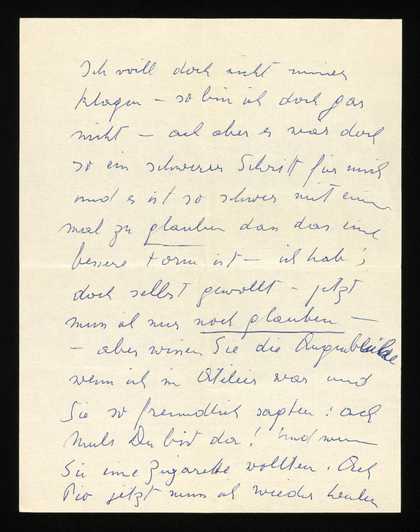 Ich will doch nicht immer
klagen – so bin ich doch gar
nicht – ach aber es war doch
so ein schwerer Schritt für mich
und es ist so schwer mit ein
mal zu glauben dass das eine
bessere Form ist – ich hab's
doch selbst gewollt – jetzt
muss ich nur noch glauben –
– aber wissen Sie die Augenblicke
wenn ich im Atelier war und
Sie so freundlich sagten: ach
Muls Du bist da! Und wenn
Sie eine Zigarette wollten. Ach
Pio jetzt muss ich wieder heulen